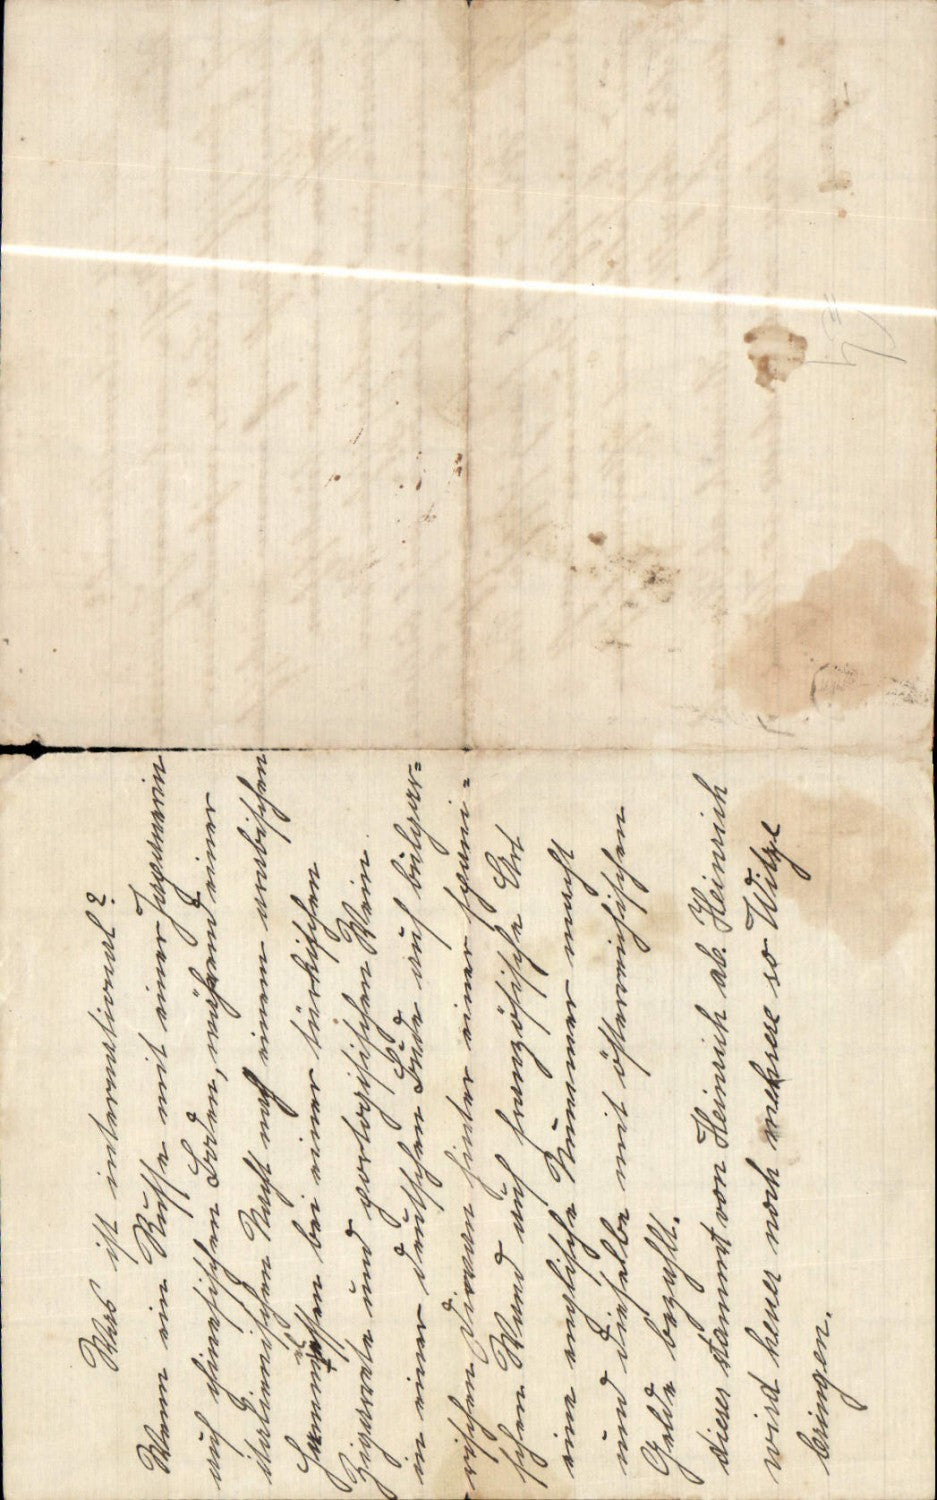 Was ist international?
Wenn ein Russe mit einer Japanerin
auf chinesischen Boden, während einer
italienischen Nacht nach einem arabischen
bei einer türkischen
Zigarrete und portogisischen Wein
in einer deutschen Bude auf bulgar=
ischen Diwan hinter einer spani=
schen Wand auf französische Art
eine englische Nummer macht
und dieselbe mit österreichischen
Gelde bezahlt.
dieser stammt von Heinrich ab. Heinrich
wird heuer noch mehrere so Witze
bringen.